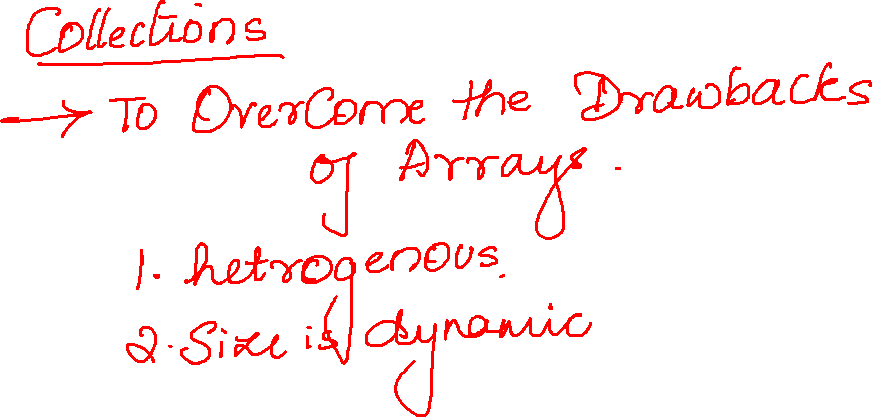 Collections
→ To OverCome the Drawbacks
of Arrays.
1. hetrogenous.
2. Size is dynamic